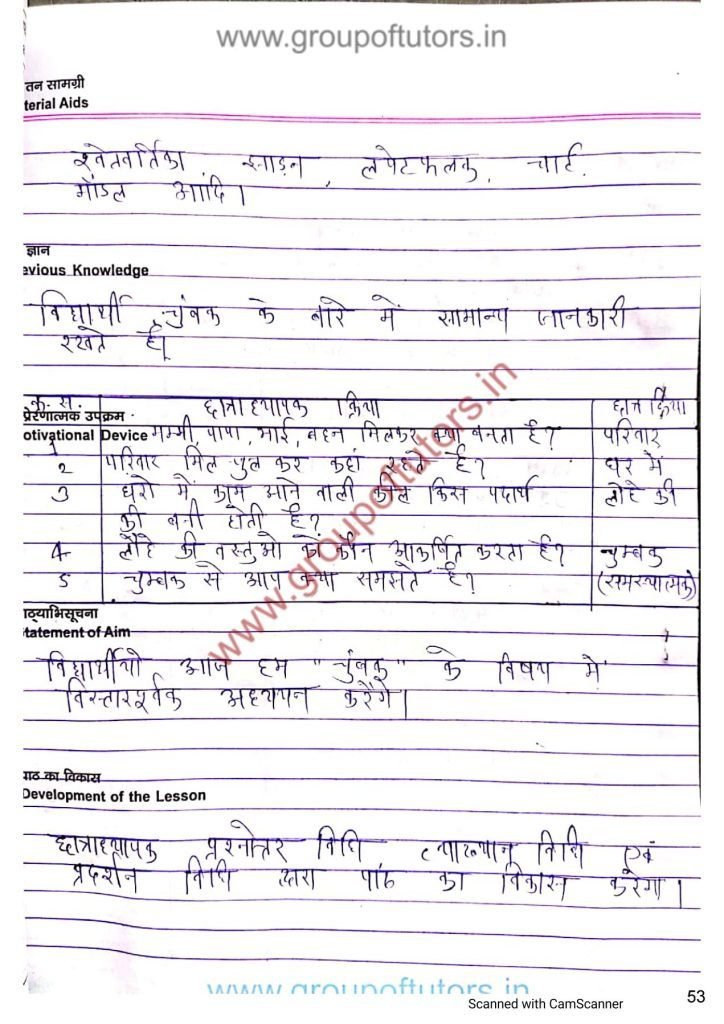 www.groupoftutors.in
तन सामग्री
terial Aids
श्वेतवर्तिका, झाड़न, लपेटफलक, चार्ट,
मॉडल आदि।
ज्ञान
evious Knowledge
विद्यार्थी चुंबक के बारे में सामान्य जानकारी
रखते है।
क्र. स. छात्राध्यापक क्रिया छात्र क्रिया
प्रेरणात्मक उपक्रम
otivational Device
1 मम्मी, पापा, भाई, बहन मिलकर क्या बनता है? परिवार
2 परिवार मिल जुल कर कहां रहते है? घर में
3 घरो में काम आने वाली कील किस पदार्थ लोहे की
की बनी होती है?
4 लोहे की वस्तुओ को कौन आकर्षित करता है? चुम्बक
5 चुम्बक से आप क्या समझते है? (समस्यात्मक)
ाठ्याभिसूचना
tatement of Aim
विद्यार्थीयो आज हम "चुंबक" के विषय में
विस्तारपूर्वक अध्ययन करेंगे।
पाठ का विकास
Development of the Lesson
छात्राध्यापक प्रश्नोत्तर विधि व्याख्यान विधि एवं
प्रदर्शन विधि द्वारा पाठ का विकास करेगा।
www.groupoftutors.in
www.groupoftutors.in
Scanned with CamScanner
53